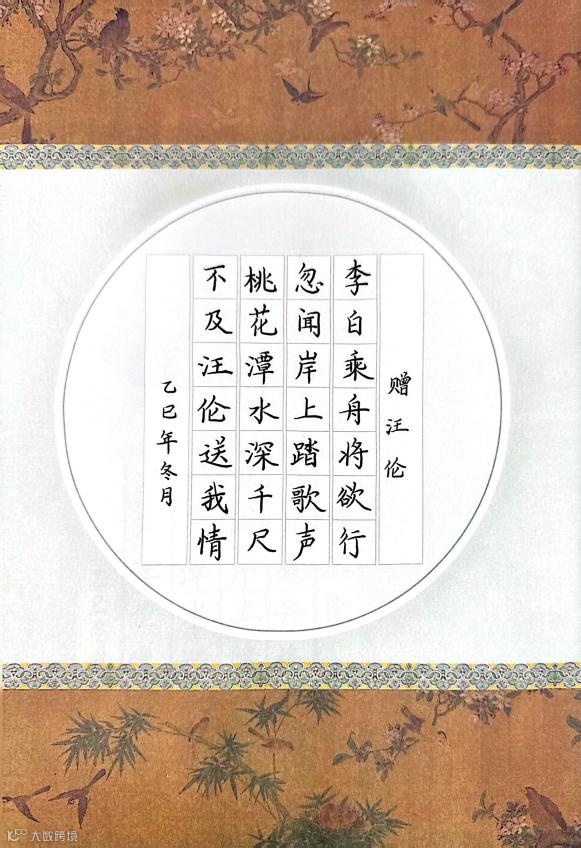 赠汪伦
李白乘舟将欲行
忽闻岸上踏歌声
桃花潭水深千尺
不及汪伦送我情
乙巳年冬月
大数跨境